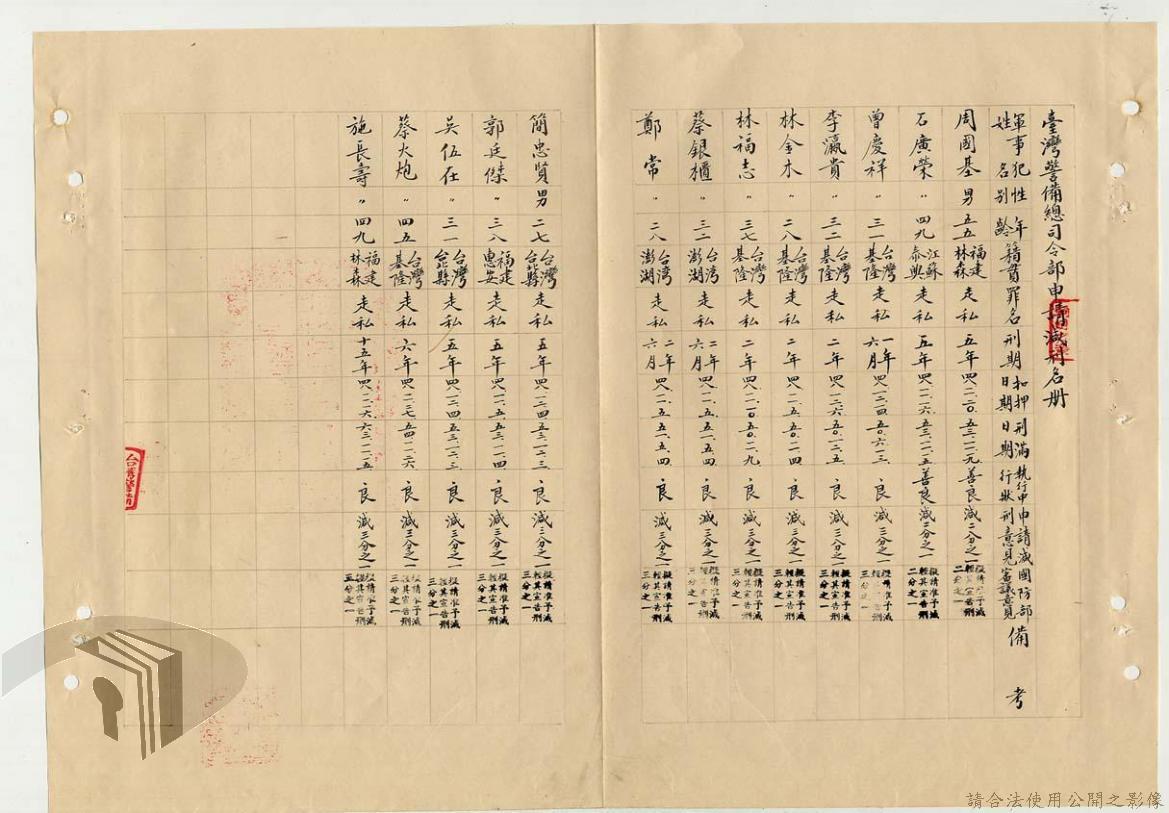 臺灣警備總司令部申請減刑名册
軍事犯姓名 性別 年齡 籍貫 罪名 刑期 扣押日期 刑滿日期 執行中行狀 申請減刑意見 國防部審議意見 備考
周國基 男 五五 福建林森 走私 五年 善良 減二分之一 擬請准予減輕其宣告刑二分之一
石廣榮 〃 四九 江蘇泰興 走私 五年 四八.一二.六. 五三.一二.五 善良 減二分之一 擬請准予減輕其宣告刑二分之一
曾慶祥 〃 三一 台灣基隆 走私 一年六月 良 減三分之一 擬請准予減輕其宣告刑三分之一
李瀛貴 〃 三二 台灣基隆 走私 二年 四八.一二.六 五〇.一二.五 良 減三分之一 擬請准予減輕其宣告刑三分之一
林金木 〃 二八 台灣基隆 走私 二年 四八.一二.五. 五〇.一二.四 良 減三分之一 擬請准予減輕其宣告刑三分之一
林福志 〃 三七 台灣基隆 走私 二年 四八.一二.一〇 五〇.一二.九 良 減三分之一 擬請准予減輕其宣告刑三分之一
蔡銀櫃 〃 三二 台湾澎湖 走私 二年六月 良 減三分之一 擬請准予減輕其宣告刑三分之一
鄭常 〃 二八 台湾澎湖 走私 二年六月 良 減三分之一 擬請准予減輕其宣告刑三分之一
簡忠賢 男 二七 台灣台北縣 走私 五年 四八.一二.四 五三.一二.三. 良 減三分之一 擬請准予減輕其宣告刑三分之一
郭廷傑 〃 三八 福建惠安 走私 五年 四八.一二.五. 五三.一二.四 良 減三分之一 擬請准予減輕其宣告刑三分之一
吳伍在 〃 三一 台灣台北縣 走私 五年 四八.一二.四. 五三.一二.三. 良 減三分之一 擬請准予減輕其宣告刑三分之一
蔡火炮 〃 四五 台灣基隆 走私 六年 四八.一二.七 五四.一二.六 良 減三分之一 擬請准予減輕其宣告刑三分之一
施長壽 〃 四九 福建林森 走私 十五年 四八.一二.六 六三.一二.五 良 減三分之一 擬請准予減輕其宣告刑三分之一
請合法使用公開之影像